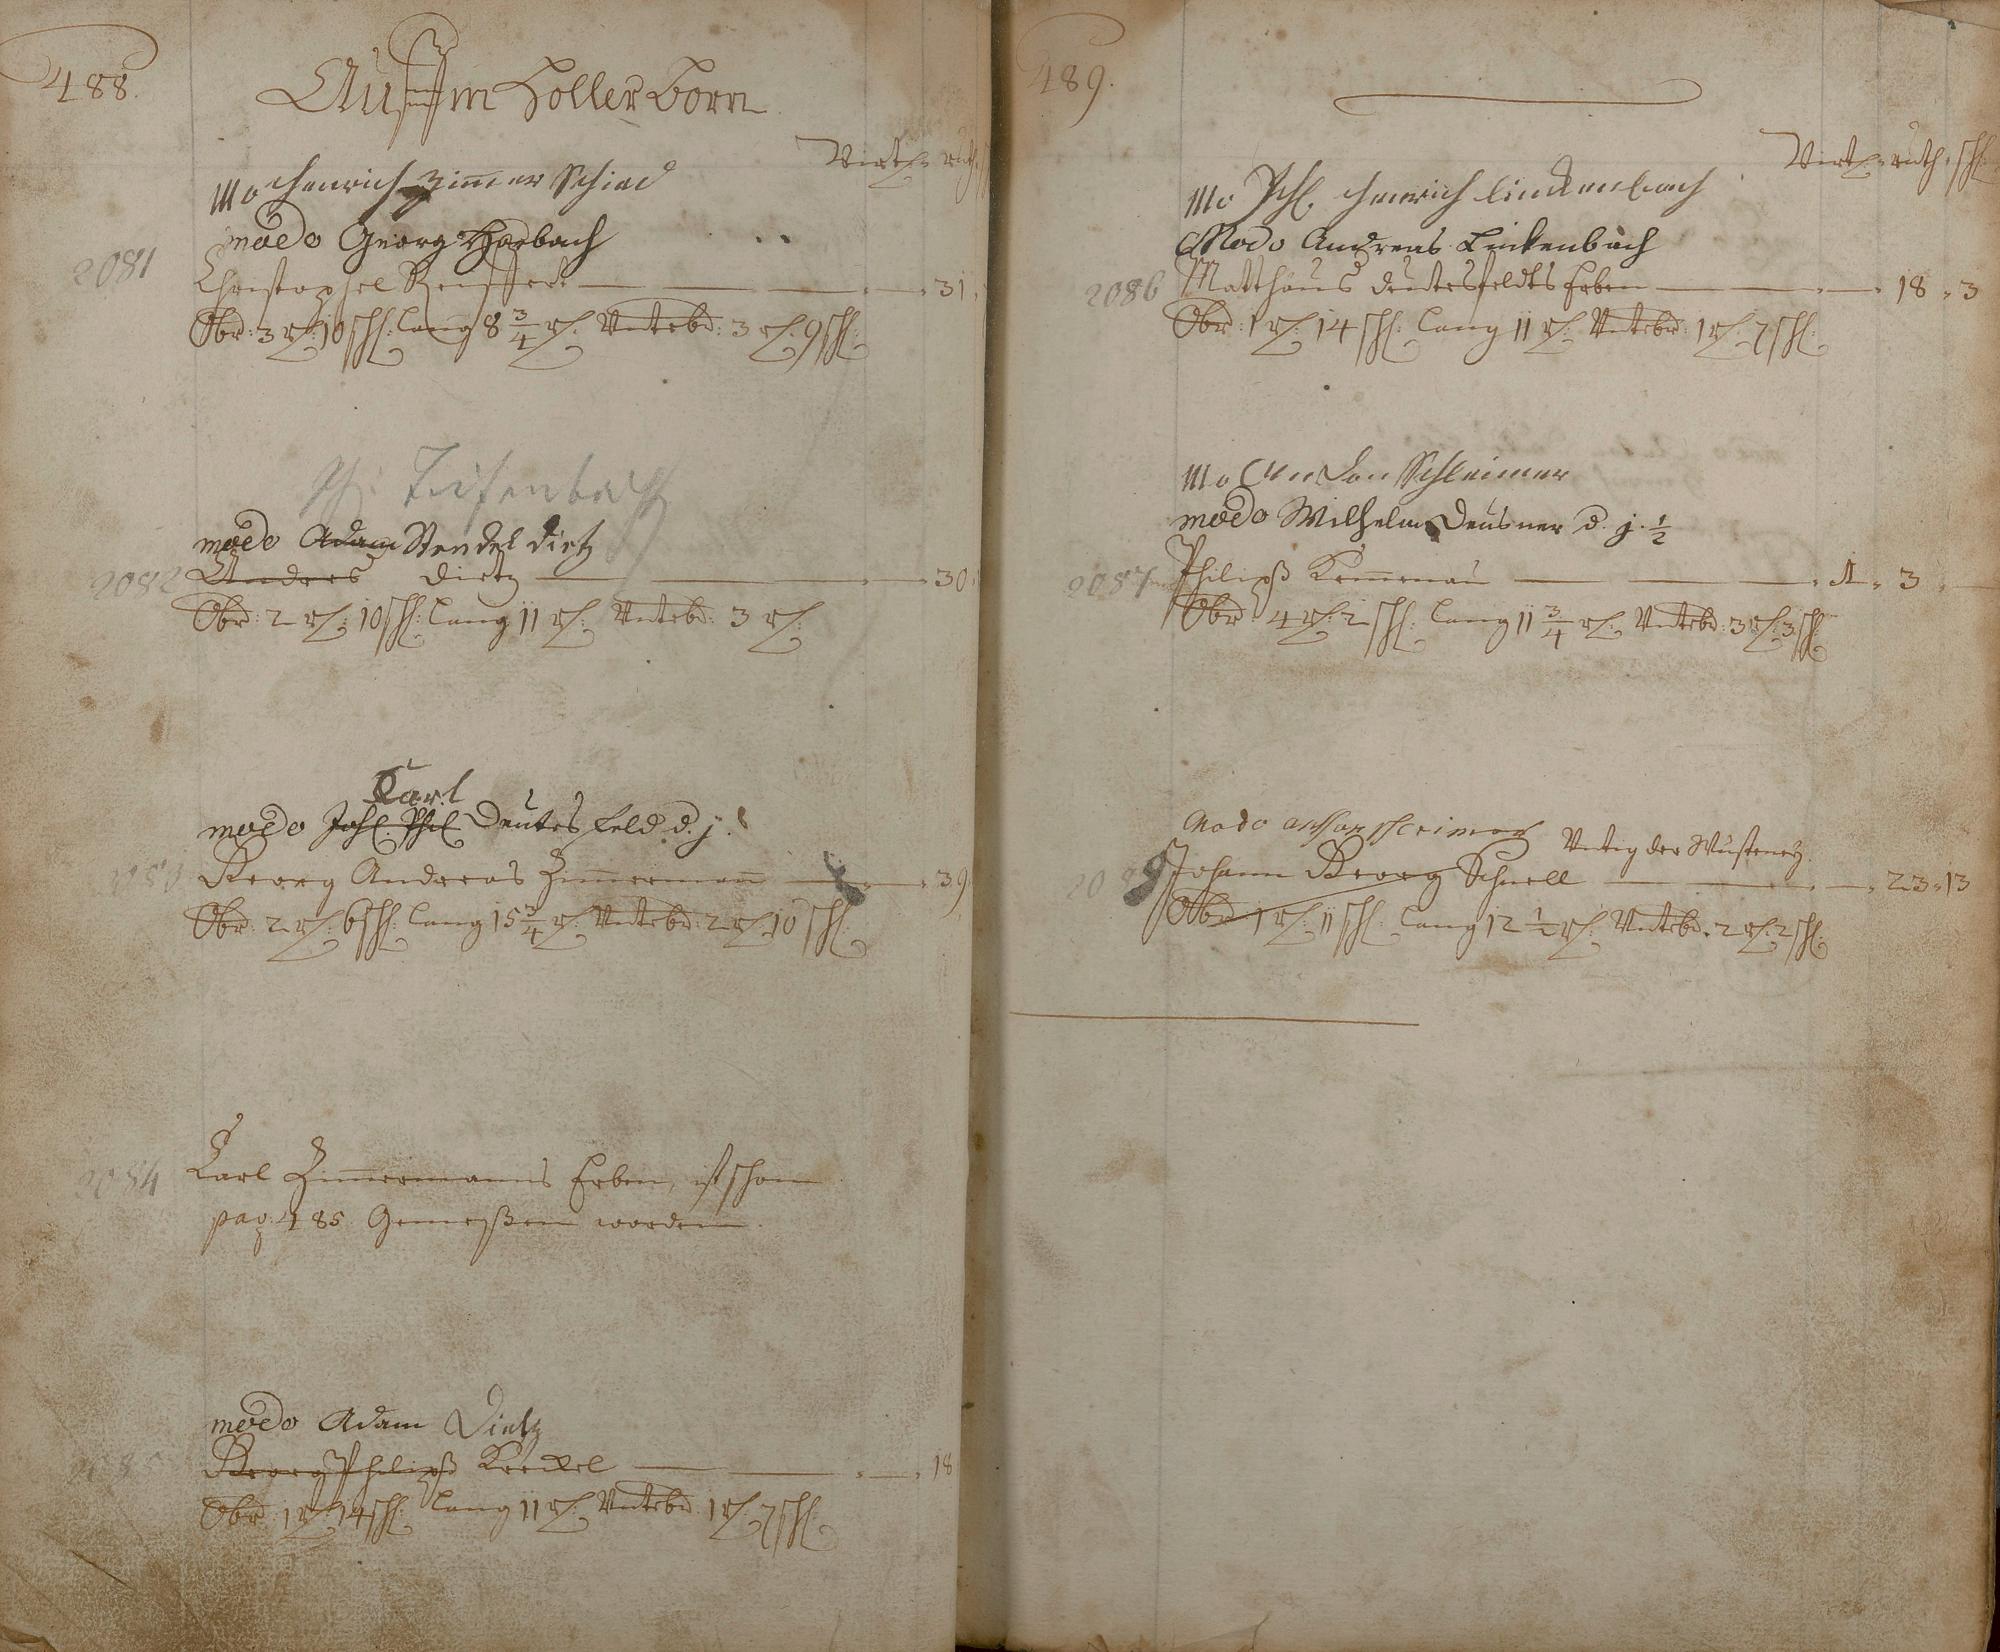 488.
Auffm Hollerborn
Virtl. ruth.
Mo Henrich Zimmer Schied
modo Georg Harbach
2081 Christophel Reuffert — 31
Obr: 3 r: 10 sch: lang 8 3/4 r: Unterbr: 3 r: 9 sch:
Ph: Tiefenbach
modo Adam Stendel Dietz
2082 Anders Dietz — 30
Obr: 2 r: 10 sch: lang 11 r: Unterbr: 3 r:
Carl
modo Joh. Phil Deutesfeld d. j.
Georg Andreas Zimmermann — 39
Obr: 2 r: 6 sch: lang 15 3/4 r: Unterbr: 2 r: 10 sch:
2084 Carl Zimmermanns Erben, ist schon
pag: 485 Gemeßen worden.
modo Adam Dietz
2085 Georg Philipß Keckel — 18
Obr: 1 r: 14 sch: lang 11 r: Unterbr: 1 r: 7 sch:
489.
Virtl. ruth. sch.
Mo Phl. Henrich Linckenbach
Modo Andreas Linkenbach
2086 Matthäus Deutesfeldts Erben — 18 " 3
Obr: 1 r: 14 sch: lang 11 r: Unterbr: 1 r: 7 sch:
Mo Anton Schleimer
modo Wilhelm Deusner d. j. 1/2
2087 Philipß Kemmenau — 1 " 3
Obr: 4 r: 2 sch: lang 11 3/4 r: Unterbr: 3 r: 3 sch:
Modo Schleimer Untig der Wusteney.
Johann Georg Schnell — 23 " 13
Obr 1 r: 11 sch: lang 12 1/2 r: Unterbr. 2 r: 2 sch: